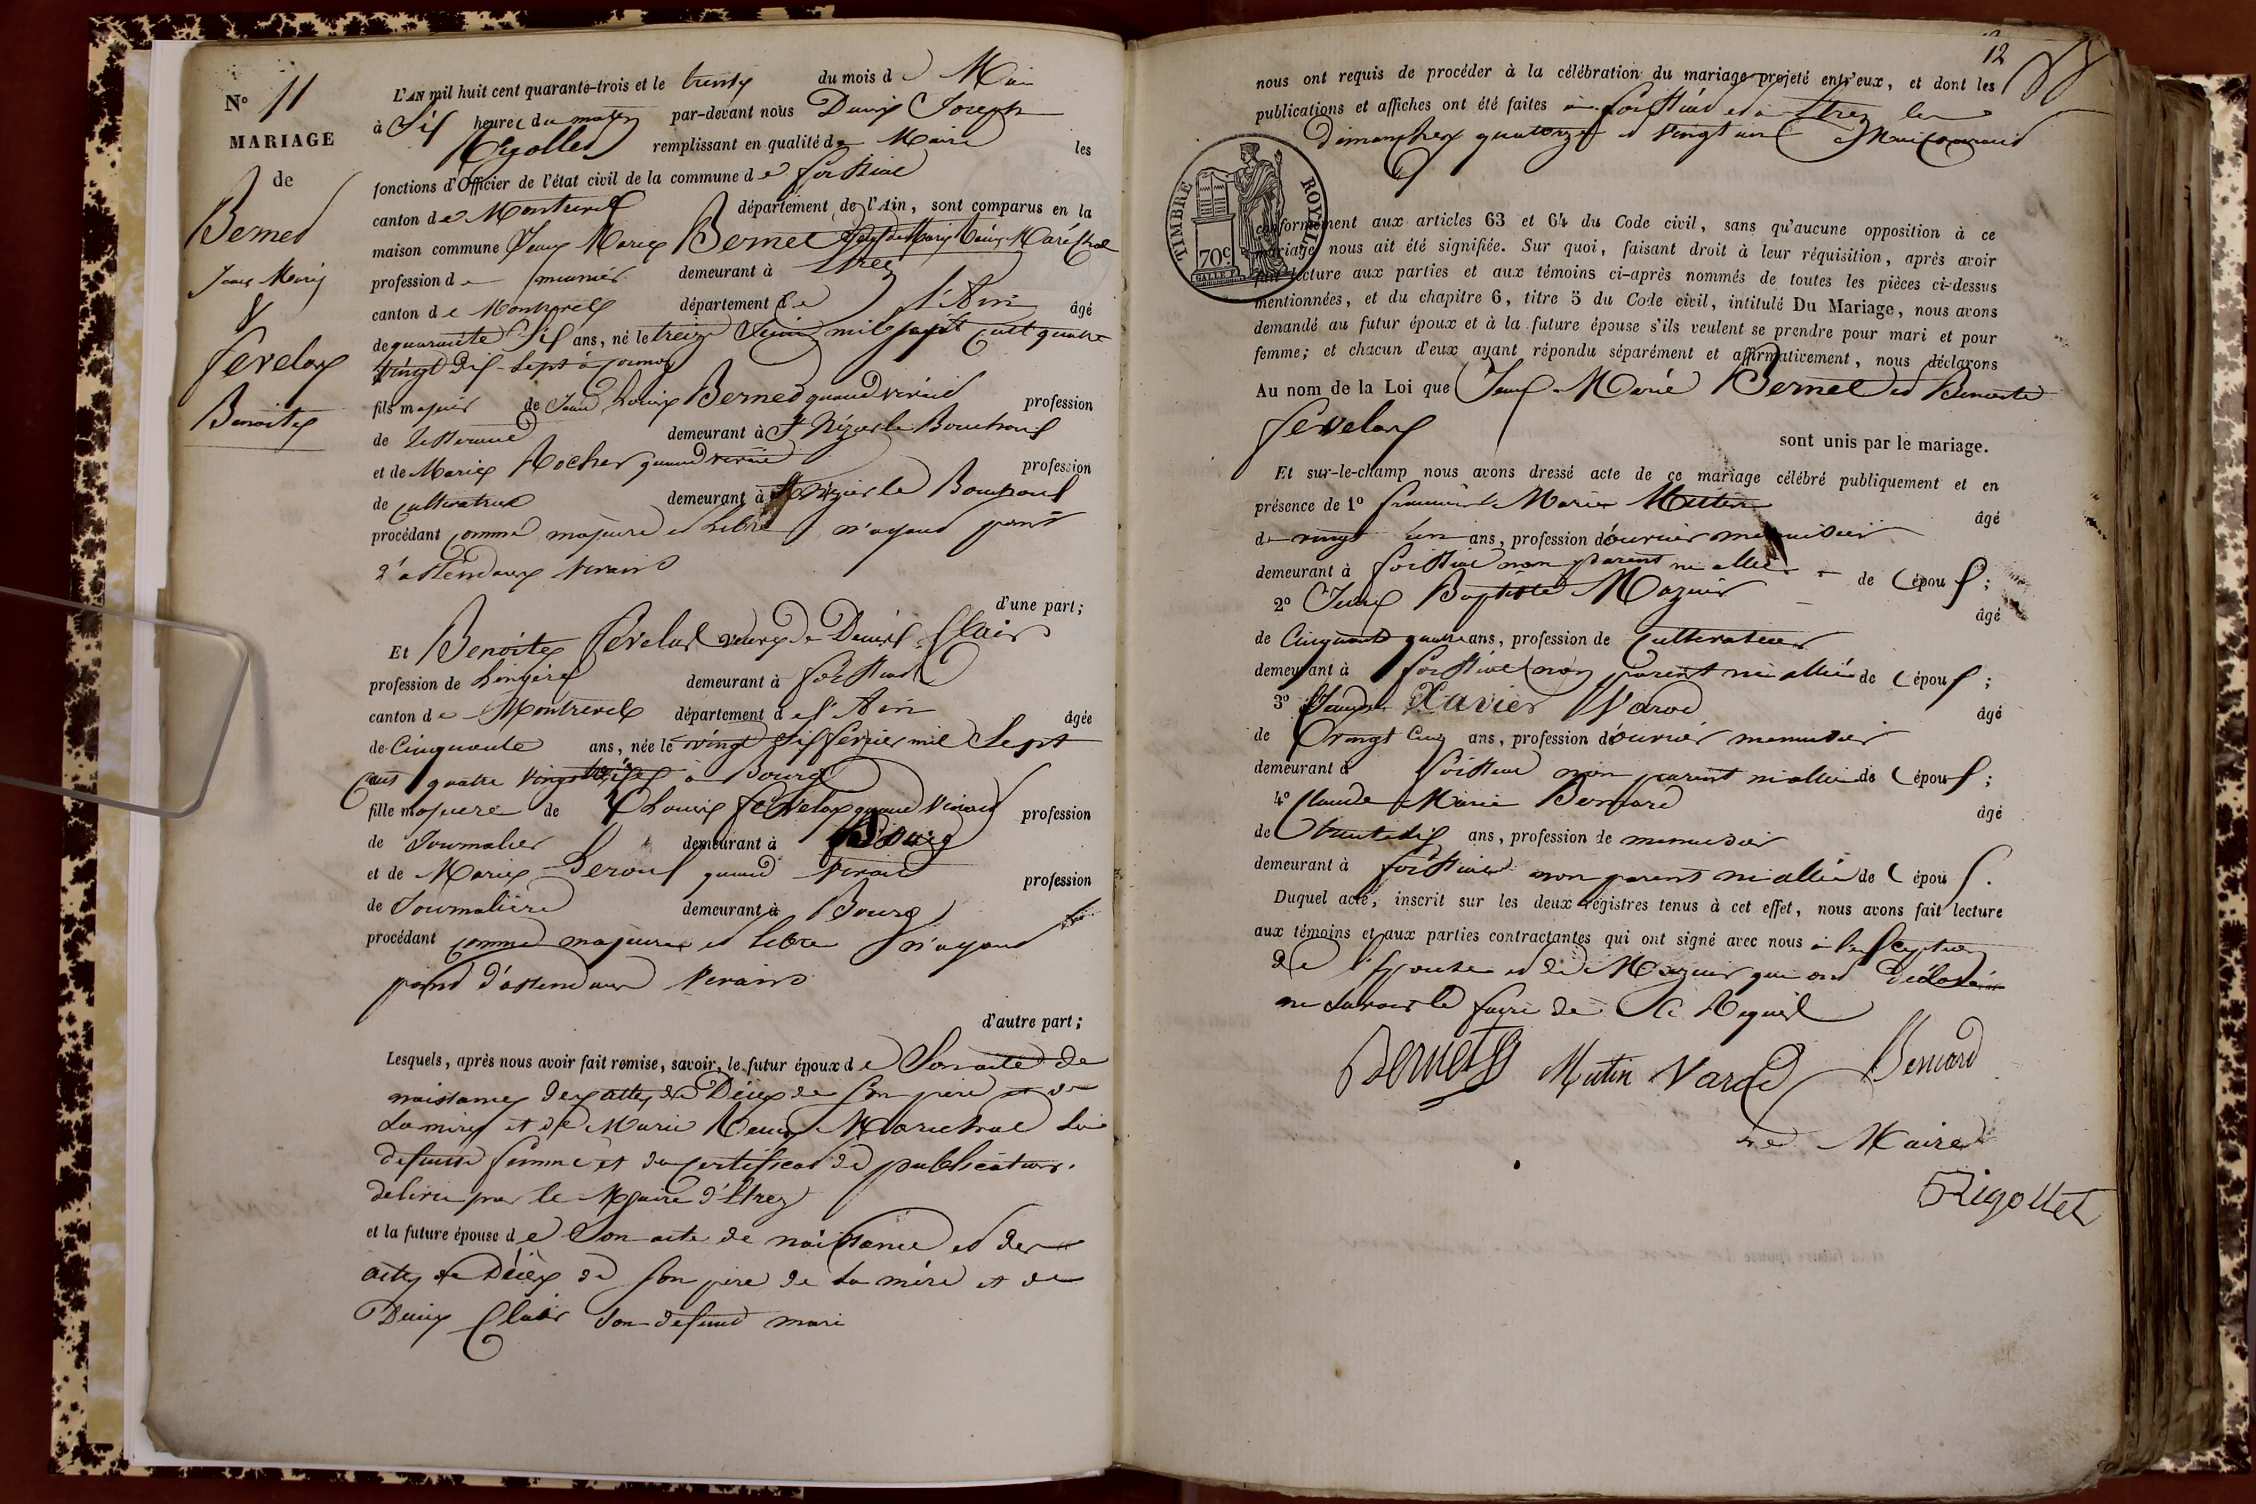 N° 11
MARIAGE
de
Bernet
Jean Marie
&
fevelas
Benoite
L'AN mil huit cent quarante-trois et le trente du mois de Mai
à dix heures du matin par-devant nous Denis Joseph
Rigollet remplissant en qualité de Maire les
fonctions d'Officier de l'état civil de la commune de foissiat
canton de Montrevel département de l'Ain, sont comparus en la
maison commune Jean Marie Bernet veuf de Marie Maréchal
profession de meunier demeurant à Etrez
canton de Montrevel département de l'Ain âgé
de quarante six ans, né le treize Juin mil sept cent quatre
vingt dix-sept à
fils majeur de Jean Louis Bernet quand vivait profession
de demeurant à St Nizier le Bouchoux
et de Marie Rocher quand vivait profession
de cultivatrice demeurant à St Nizier le Bouchoux
procédant comme majeure et libre n'ayant point
d'assendans vivans
d'une part;
Et Benoite fevelas veuve de Denis Clair
profession de Lingère demeurant à foissiat
canton de Montrevel département de l'Ain âgée
de Cinquante ans, née le vingt six fevrier mil Sept
Cent quatre vingt treize à Bourg
fille majeure de Louis fevelas quand vivait profession
de Journalier demeurant à Bourg
et de Marie Leroux quand vivait profession
de Journalière demeurant à Bourg
procédant comme majeure et libre n'ayant
point d'assendans vivans
d'autre part;
Lesquels, après nous avoir fait remise, savoir, le futur époux de Son acte de
naissance des actes de Décès de Son père et de
Sa mère et de Marie Maréchal Sa
defunte femme et du certificat de publication
delivré par le Maire d'Etrez
et la future épouse de Son acte de naissance et des
actes de Décès de Son père de Sa mère et de
Denis Clair Son defunt mari
12
nous ont requis de procéder à la célébration du mariage projeté entr'eux, et dont les
publications et affiches ont été faites à foissiat et à Etrez les
dimanches quatorze et vingt un Mai courant
TIMBRE ROYAL
70c.
conformément aux articles 63 et 64 du Code civil, sans qu'aucune opposition à ce
mariage nous ait été signifiée. Sur quoi, faisant droit à leur réquisition, après avoir
fait lecture aux parties et aux témoins ci-après nommés de toutes les pièces ci-dessus
mentionnées, et du chapitre 6, titre 5 du Code civil, intitulé Du Mariage, nous avons
demandé au futur époux et à la future épouse s'ils veulent se prendre pour mari et pour
femme; et chacun d'eux ayant répondu séparément et affirmativement, nous déclarons
Au nom de la Loi que Jean Marie Bernet et Benoite
fevelas
sont unis par le mariage.
Et sur-le-champ nous avons dressé acte de ce mariage célébré publiquement et en
présence de 1° Marie Mutin âgé
de vingt un ans, profession d'ouvrier menuisier
demeurant à foissiat non parent ni allié de l'époux;
2° Jean Baptiste Mazuir âgé
de Cinquante quatre ans, profession de cultivateur
demeurant à foissiat non parent ni allié de l'époux;
3° Xavier Varod âgé
de vingt Cinq ans, profession d'ouvrier menuisier
demeurant à foissiat non parent ni allié de l'époux;
4° Claude Marie Bernard âgé
de trente dix ans, profession de menuisier
demeurant à foissiat non parent ni allié de l'époux.
Duquel acte, inscrit sur les deux registres tenus à cet effet, nous avons fait lecture
aux témoins et aux parties contractantes qui ont signé avec nous à l'exception
de l'Epouse et de Mazuir qui ont déclaré
ne savoir le faire de ce Requis
Bernet Mutin Varod Bernard
Maire
Rigollet